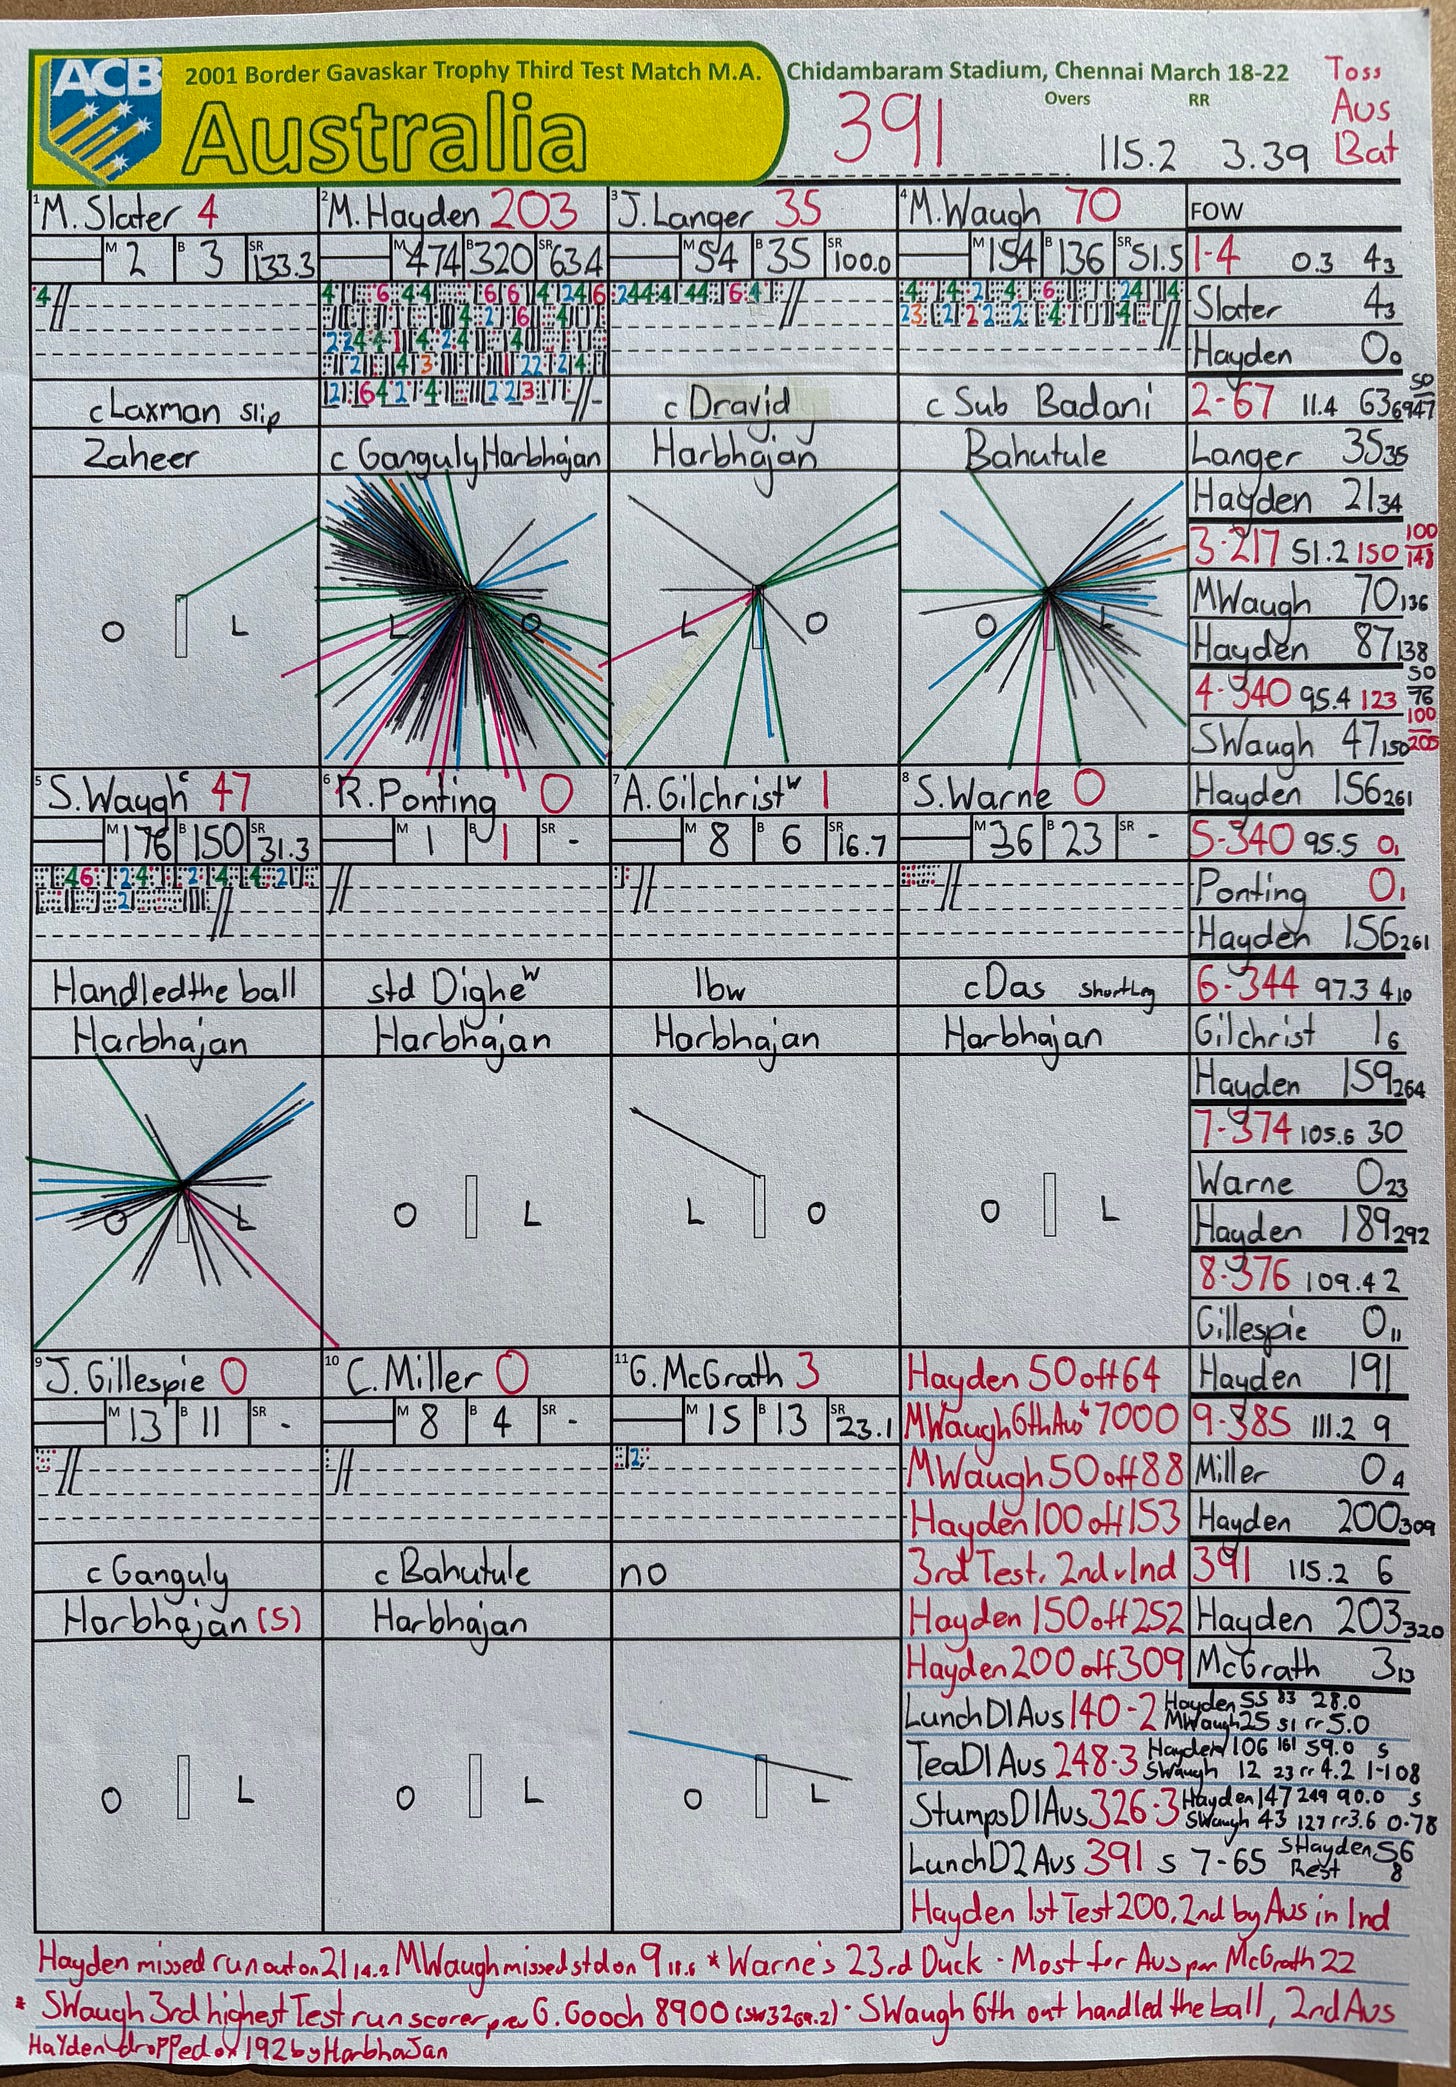 ACB
2001 Border Gavaskar Trophy Third Test Match M.A. Chidambaram Stadium, Chennai March 18-22
Australia
391
Overs RR
115.2 3.39
Toss
Aus
Bat
1 M. Slater 4
M 2 B 3 SR 133.3
4
c Laxman slip
Zaheer
O L
2 M. Hayden 203
M 474 B 320 SR 63.4
c Ganguly Harbhajan
L O
3 J. Langer 35
M 54 B 35 SR 100.0
c Dravid
Harbhajan
L O
4 M. Waugh 70
M 154 B 136 SR 51.5
c Sub Badani
Bahutule
O L
5 S. Waugh c 47
M 176 B 150 SR 31.3
Handled the ball
Harbhajan
O L
6 R. Ponting 0
M 1 B 1 SR -
std Dighe w
Harbhajan
O L
7 A. Gilchrist w 1
M 8 B 6 SR 16.7
lbw
Harbhajan
L O
8 S. Warne 0
M 36 B 23 SR -
c Das short leg
Harbhajan
O L
9 J. Gillespie 0
M 13 B 11 SR -
c Ganguly
Harbhajan (5)
O L
10 C. Miller 0
M 8 B 4 SR -
c Bahutule
Harbhajan
O L
11 G. McGrath 3
M 15 B 13 SR 23.1
2
no
O L
FOW
1-4 0.3 4 3
Slater 4 3
Hayden 0 0
2-67 11.4 63 69 50 47
Langer 35 35
Hayden 21 34
3-217 51.2 150 100 148
MWaugh 70 136
Hayden 87 138
4-340 95.4 123 50 76
SWaugh 47 150 100 205
Hayden 156 261
5-340 95.5 0 1
Ponting 0 1
Hayden 156 261
6-344 97.3 4 10
Gilchrist 1 6
Hayden 159 264
7-374 105.6 30
Warne 0 23
Hayden 189 292
8-376 109.4 2
Gillespie 0 11
Hayden 191
9-385 111.2 9
Miller 0 4
Hayden 200 309
391 115.2 6
Hayden 203 320
McGrath 3 13
Hayden 50 off 64
MWaugh 6th Aus 7000
MWaugh 50 off 88
Hayden 100 off 153
3rd Test, 2nd v Ind
Hayden 150 off 252
Hayden 200 off 309
Lunch D1 Aus 140-2 Hayden 55 83 28.0
MWaugh 25 51 rr 5.0
Tea D1 Aus 248-3 Hayden 106 161 59.0 s
SWaugh 12 23 rr 4.2 1-108
Stumps D1 Aus 326-3 Hayden 147 249 90.0 s
SWaugh 43 127 rr 3.6 0-78
Lunch D2 Aus 391 s 7-65 s Hayden 56
Rest 8
Hayden 1st Test 200, 2nd by Aus in Ind
Hayden missed run out on 21 14.2 MWaugh missed std on 9 18.6 * Warne's 23rd Duck - Most for Aus prev McGrath 22
* SWaugh 3rd highest Test run scorer prev G. Gooch 8900 (SW 32 69.2) · SWaugh 6th out handled the ball, 2nd Aus
Hayden dropped on 192 by Harbhajan